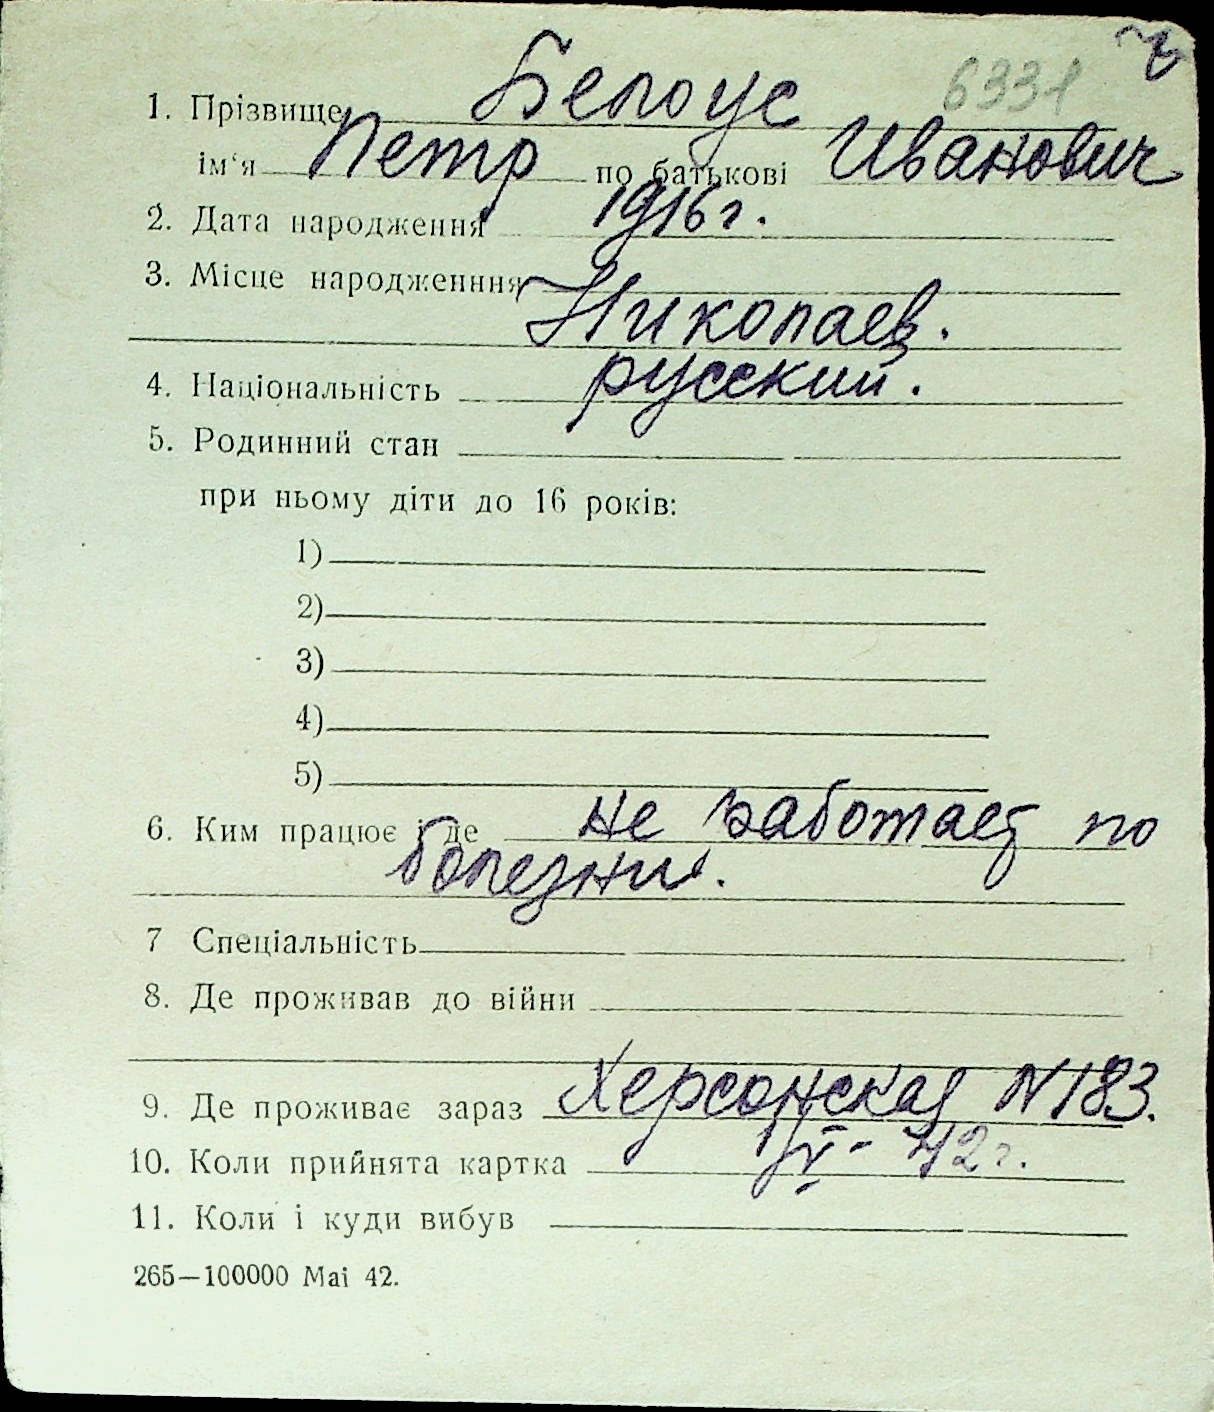 6331
1. Прізвище Белоус
ім'я Петр по батькові Иванович
2. Дата народження 1916 г.
3. Місце народженння Николаев.
4. Національність русский.
5. Родинний стан
при ньому діти до 16 років:
1)
2)
3)
4)
5)
6. Ким працює і де не работает по
болезни.
7 Спеціальність
8. Де проживав до війни
9. Де проживає зараз Херсонская N 183.
10. Коли прийнята картка 42 г.
11. Коли і куди вибув
265—100000 Mai 42.